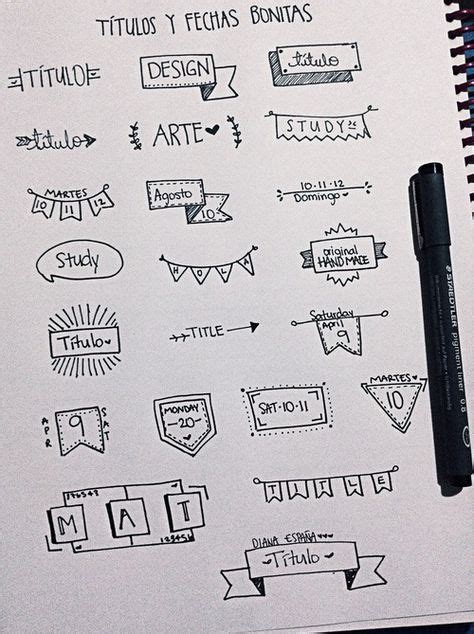 TÍTULOS Y FECHAS BONITAS
TÍTULO
DESIGN
título
título
ARTE
STUDY
MARTES
10 11 12
Agosto
10
10·11·12
Domingo
Study
HOLA
original
HANDMADE
Título
TITLE
Saturday
April
9
APR
9
SAT
MONDAY
-20-
SAT·10·11
MARTES
10
176543
MAT
123456
TITLE
DIANA ESPAÑA
Título
STAEDTLER pigment liner 0.8